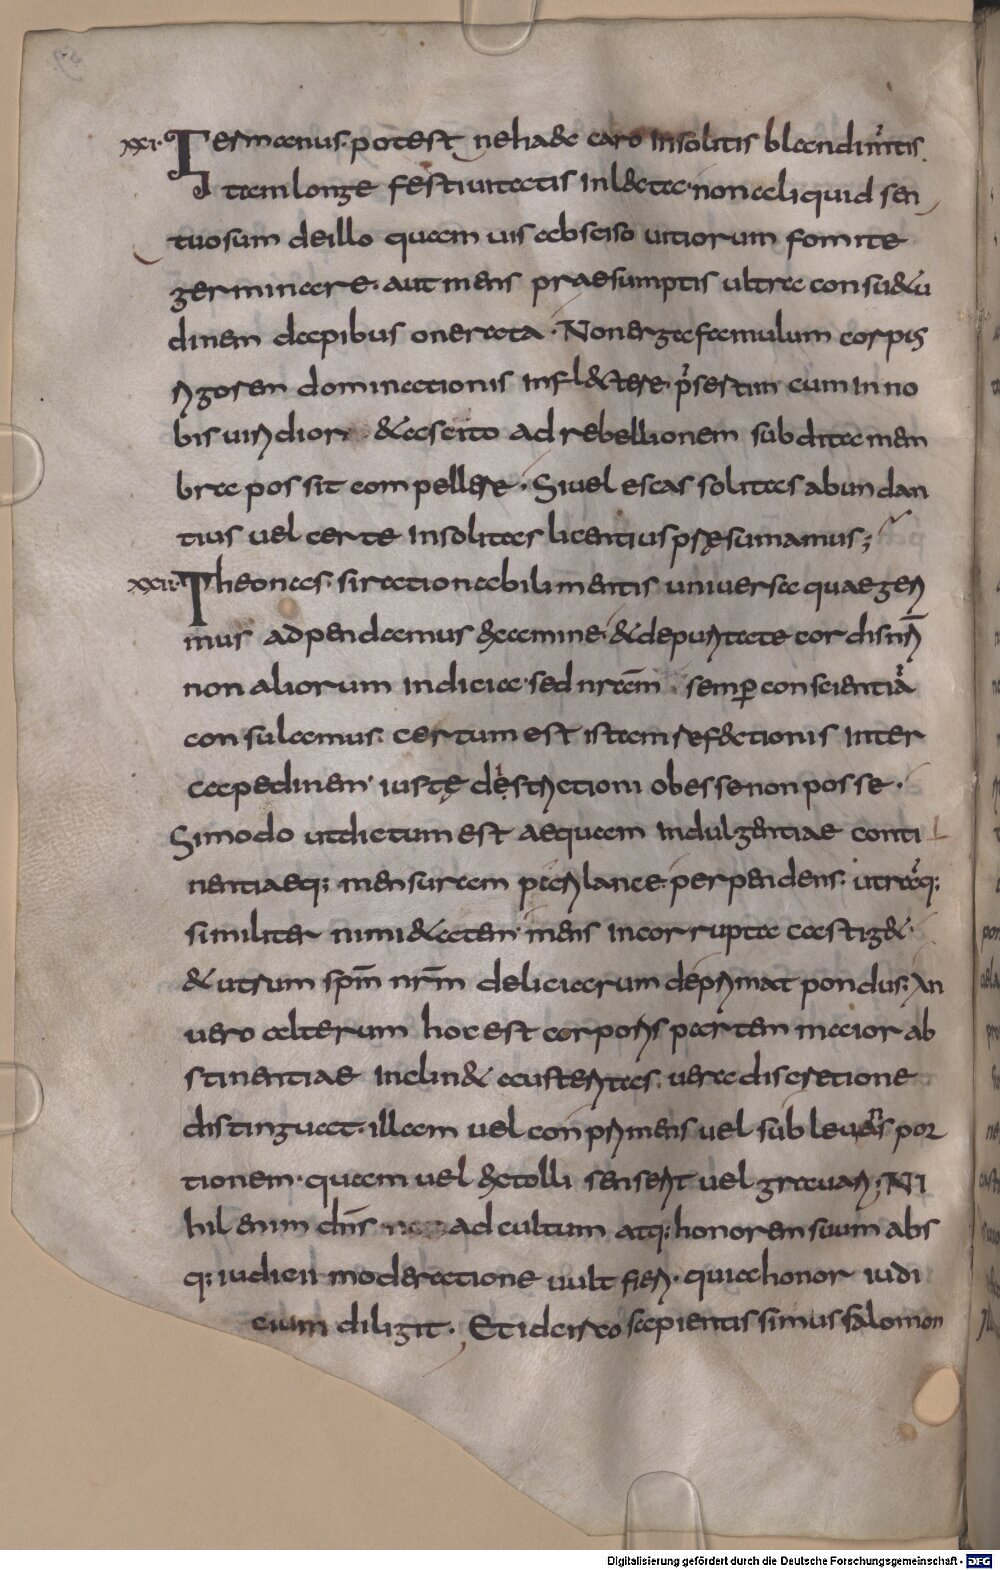 XXI· Germanus· potest nehaec caro insolitis blandimentis
tam longe festiuitatis inlecta· non aliquid sen
tuosum deillo quam uis absciso uitiorum fomite
germinare· aut mens praesumptis ultra consuetu
dinem dapibus onerata· Non erga famulum corporis
rigorem dominationis inflectere· praesertim cum in no
bis uiridior & ascito ad rebellionem subdita mem
bra possit compellere· Si uel escas solitas abundan
tius uel certe insolitas licentius praesumamus;
XXII· Theonas· si rationabili mentis uniuersa quae geri
mus adpendamus examine· & depuritate cordis nri
non aliorum indicia· sed nram semper conscientiā
consulamus· certum est istam refectionis inter
capedinem· iustę destrictioni obesse non posse·
Si modo ut dictum est aequam indulgentiae conti
nentiaeq; mensuram pari lance perpendens· utraq;
similiter nimietatem mens incorrupta castiget·
& utrum spm nrm deliciarum deprimat pondus; An
uero alterum hoc est corporis partem maior ab
stinentiae inclinet austeritas· uera discretione
distinguat· illam uel conprimens uel subleuans por
tionem· quam uel extolli senserit uel grauari; Ni
hil enim dns ad cultum atq; honorem suum abs
q; iudicii moderatione uult fieri· quia honor iudi
cium diligit· Et idcirco sapientissimus salomon
Digitalisierung gefördert durch die Deutsche Forschungsgemeinschaft - DFG